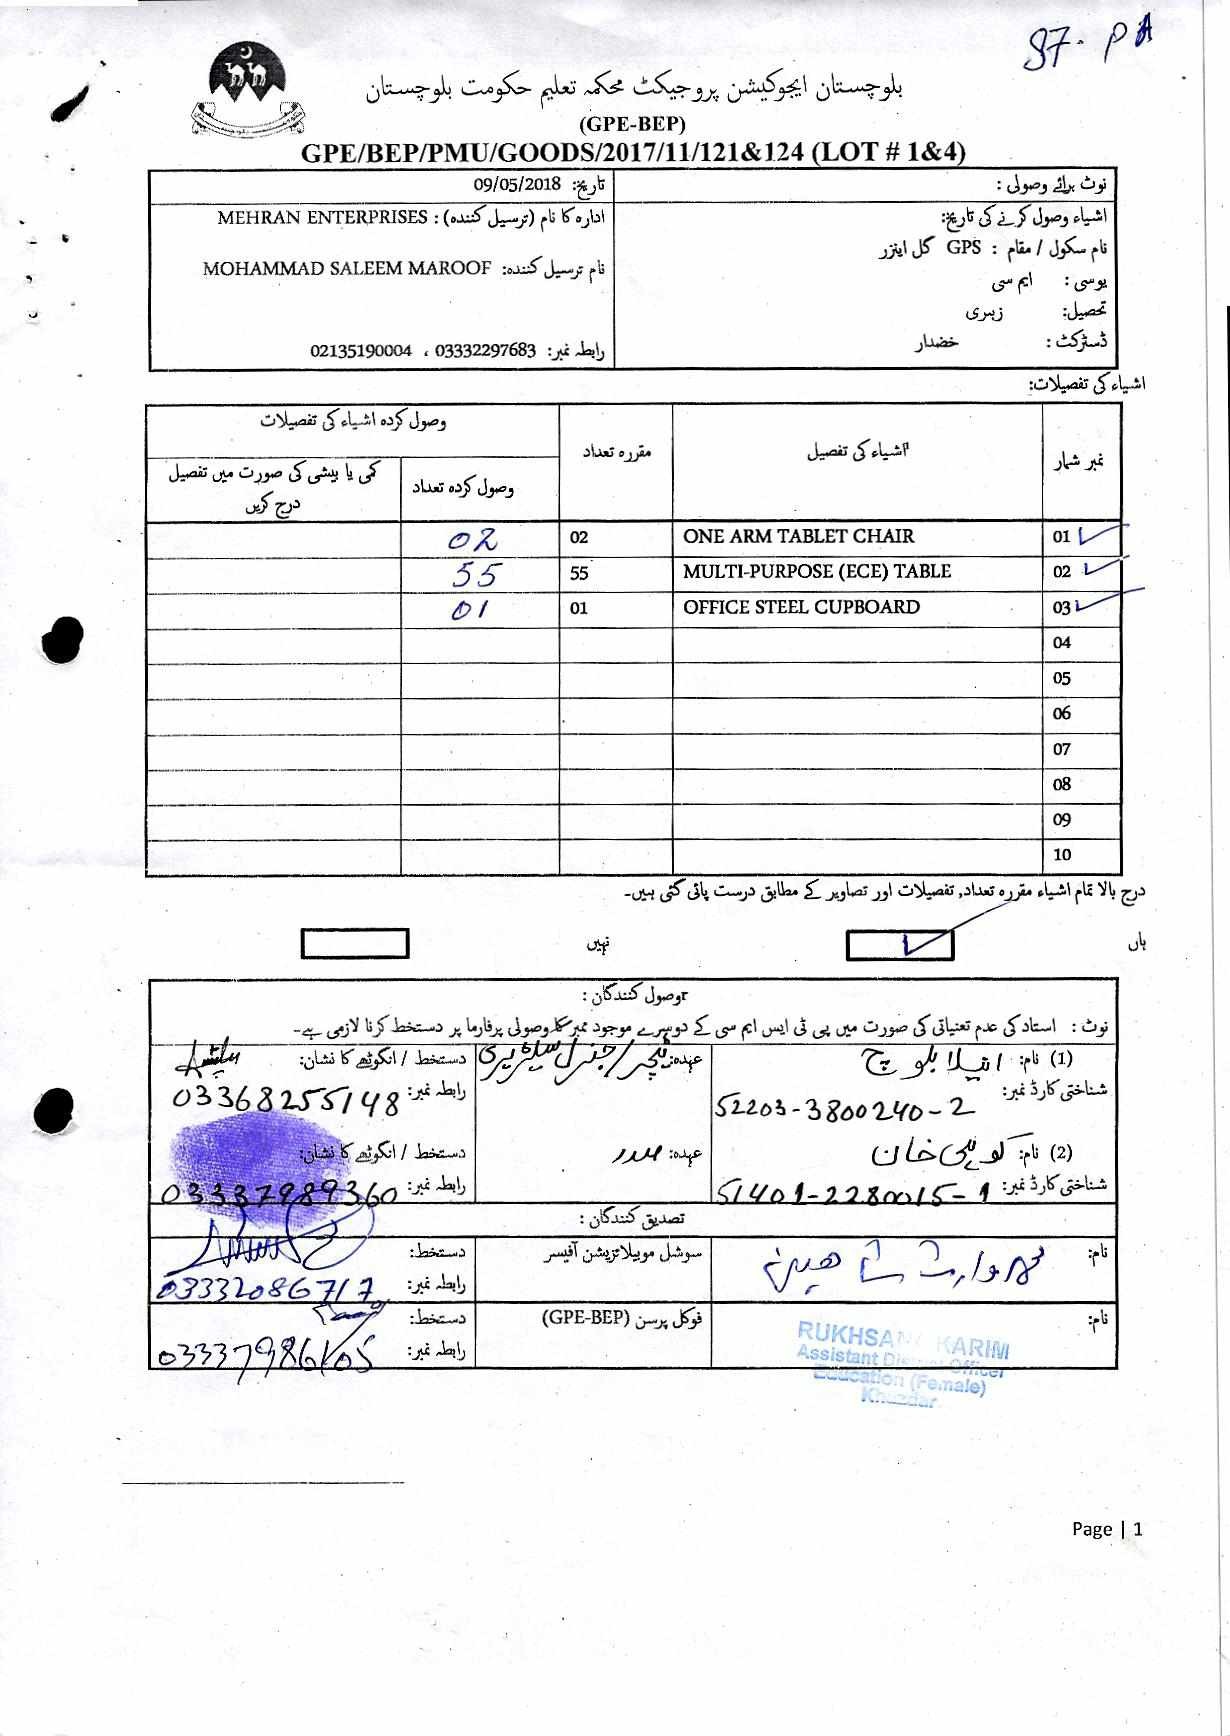 87-PA
بلوچستان ایجوکیشن پروجیکٹ محکمہ تعلیم حکومت بلوچستان
(GPE-BEP)
GPE/BEP/PMU/GOODS/2017/11/121&124 (LOT # 1&4)
نوٹ برائے وصولی :
تاریخ: 09/05/2018
اشیاء وصول کرنے کی تاریخ:
ادارہ کا نام (ترسیل کنندہ) : MEHRAN ENTERPRISES
نام سکول / مقام : GPS گل اینزر
نام ترسیل کنندہ: MOHAMMAD SALEEM MAROOF
یو سی : ایم سی
تحصیل: زہری
ڈسٹرکٹ : خضدار
رابطہ نمبر: 03332297683 ، 02135190004
اشیاء کی تفصیلات:
نمبر شمار اشیاء کی تفصیل مقررہ تعداد وصول کردہ اشیاء کی تفصیلات
وصول کردہ تعداد کمی یا بیشی کی صورت میں تفصیل درج کریں
01 ONE ARM TABLET CHAIR 02 02
02 MULTI-PURPOSE (ECE) TABLE 55 55
03 OFFICE STEEL CUPBOARD 01 01
04
05
06
07
08
09
10
درج بالا تمام اشیاء مقررہ تعداد, تفصیلات اور تصاویر کے مطابق درست پائی گئی ہیں۔
ہاں نہیں
وصول کنندگان :
نوٹ : استاد کی عدم تعیناتی کی صورت میں پی ٹی ایس ایم سی کے دوسرے موجود ممبر کا وصولی پرفارما پر دستخط کرنا لازمی ہے۔
(1) نام: انیلا بلوچ عہدہ: ٹیچر/جنرل سیکٹریری دستخط / انگوٹھے کا نشان:
شناختی کارڈ نمبر: 52203-3800240-2 رابطہ نمبر: 03368255148
(2) نام: خان عہدہ: صدر دستخط / انگوٹھے کا نشان:
شناختی کارڈ نمبر: 51401-2280015-1 رابطہ نمبر: 03337989360
تصدیق کنندگان :
نام: سوشل موبیلائزیشن آفیسر دستخط:
رابطہ نمبر: 03332086717
نام: فوکل پرسن (GPE-BEP) دستخط:
رابطہ نمبر: 03337986105
RUKHSANA KARIM
Assistant District Officer
Education (Female)
Khuzdar
Page | 1